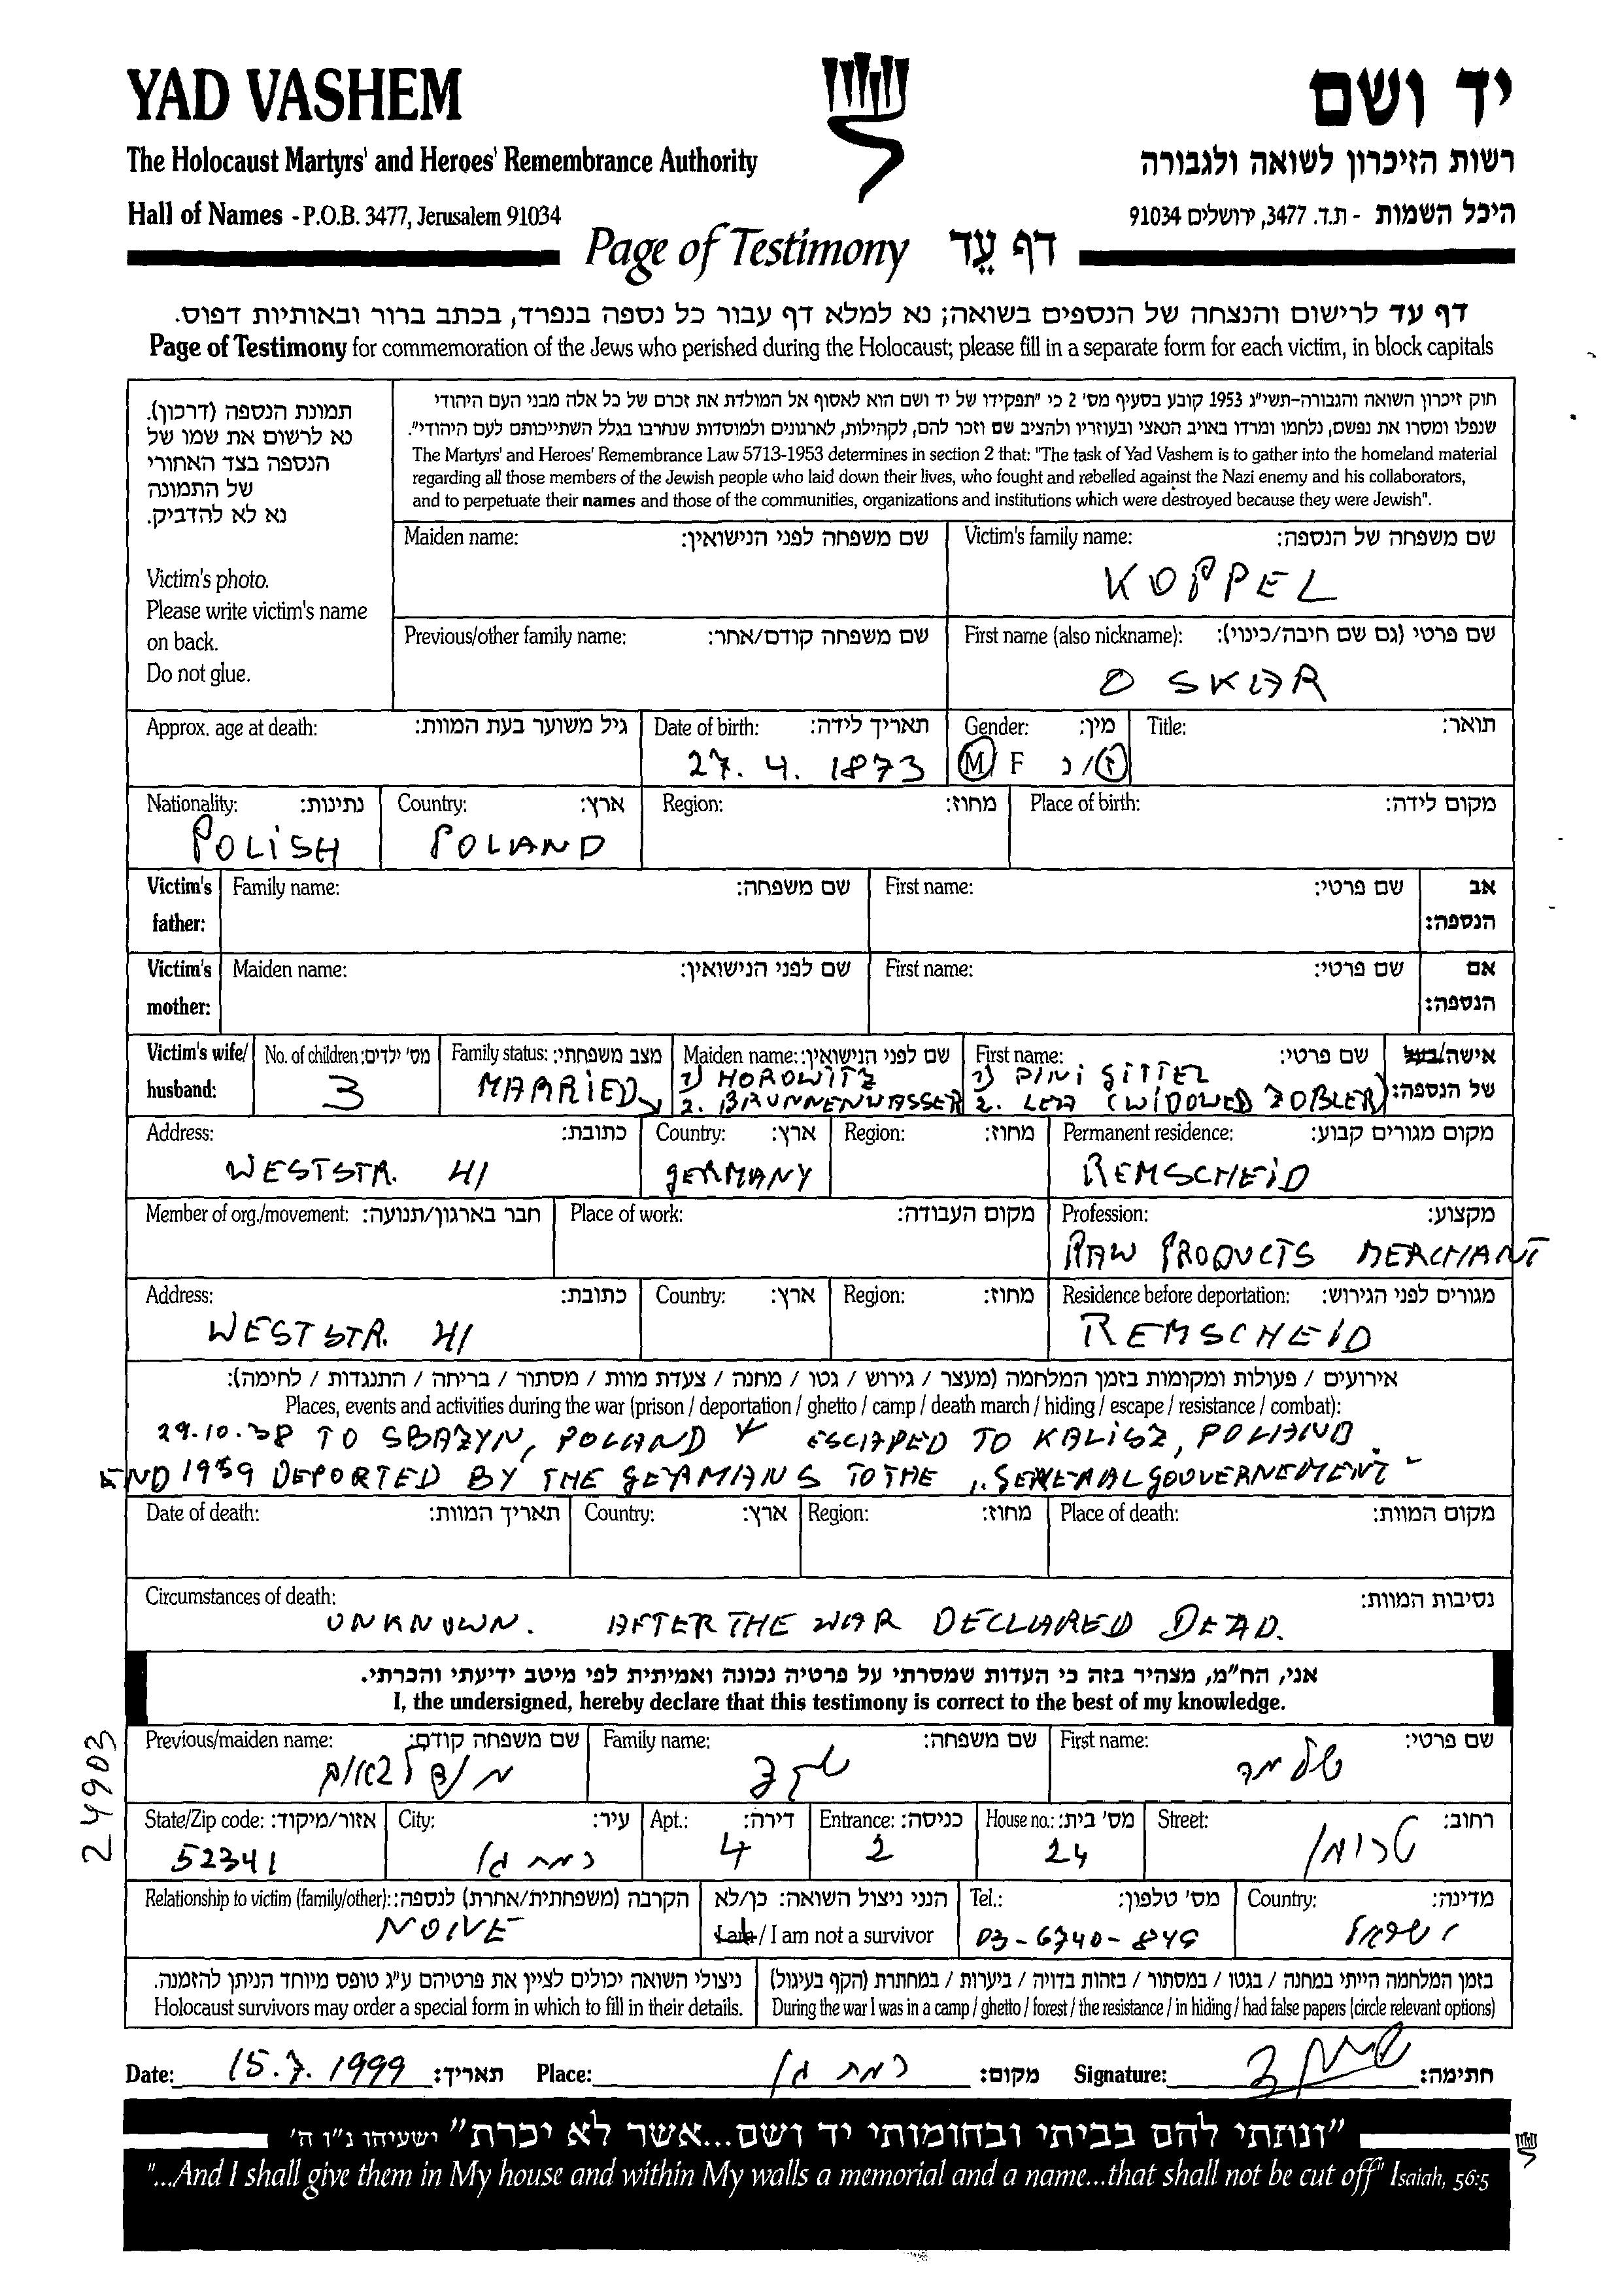 YAD VASHEM
יד ושם
The Holocaust Martyrs' and Heroes' Remembrance Authority
רשות הזיכרון לשואה ולגבורה
Hall of Names - P.O.B. 3477, Jerusalem 91034
היכל השמות - ת.ד. 3477, ירושלים 91034
Page of Testimony דף עֵד
דף עד לרישום והנצחה של הנספים בשואה; נא למלא דף עבור כל נספה בנפרד, בכתב ברור ובאותיות דפוס.
Page of Testimony for commemoration of the Jews who perished during the Holocaust; please fill in a separate form for each victim, in block capitals
תמונת הנספה (דרכון).
נא לרשום את שמו של
הנספה בצד האחורי
של התמונה
נא לא להדביק.
Victim's photo.
Please write victim's name
on back.
Do not glue.
חוק זיכרון השואה והגבורה-תשי"ג 1953 קובע בסעיף מס' 2 כי "תפקידו של יד ושם הוא לאסוף אל המולדת את זכרם של כל אלה מבני העם היהודי
שנפלו ומסרו את נפשם, נלחמו ומרדו באויב הנאצי ובעוזריו ולהציב שם וזכר להם, לקהילות, לארגונים ולמוסדות שנחרבו בגלל השתייכותם לעם היהודי".
The Martyrs' and Heroes' Remembrance Law 5713-1953 determines in section 2 that: "The task of Yad Vashem is to gather into the homeland material
regarding all those members of the Jewish people who laid down their lives, who fought and rebelled against the Nazi enemy and his collaborators,
and to perpetuate their names and those of the communities, organizations and institutions which were destroyed because they were Jewish".
Maiden name: שם משפחה לפני הנישואין:
Victim's family name: שם משפחה של הנספה:
KOPPEL
Previous/other family name: שם משפחה קודם/אחר:
First name (also nickname): שם פרטי (גם שם חיבה/כינוי):
OSKAR
Approx. age at death: גיל משוער בעת המוות:
Date of birth: תאריך לידה:
27. 4. 1873
Gender: מין:
M/ F ז/נ
Title: תואר:
Nationality: נתינות:
POLISH
Country: ארץ:
POLAND
Region: מחוז:
Place of birth: מקום לידה:
Victim's father: Family name: שם משפחה:
First name: שם פרטי: אב הנספה:
Victim's mother: Maiden name: שם לפני הנישואין:
First name: שם פרטי: אם הנספה:
Victim's wife/ husband:
No. of children: מס' ילדים:
3
Family status: מצב משפחתי:
MARRIED
Maiden name: שם לפני הנישואין:
1) HOROWITZ
2. BRUNNENWASSER
First name: שם פרטי:
1) PINI GITTEL
2. LEA (WIDOWED ZOBLER)
אישה/בעל של הנספה:
Address: כתובת:
WESTSTR. 41
Country: ארץ:
GERMANY
Region: מחוז:
Permanent residence: מקום מגורים קבוע:
REMSCHEID
Member of org./movement: חבר בארגון/תנועה:
Place of work: מקום העבודה:
Profession: מקצוע:
RAW PRODUCTS MERCHANT
Address: כתובת:
WESTSTR. 41
Country: ארץ:
Region: מחוז:
Residence before deportation: מגורים לפני הגירוש:
REMSCHEID
אירועים / פעולות ומקומות בזמן המלחמה (מעצר / גירוש / גטו / מחנה / צעדת מוות / מסתור / בריחה / התנגדות / לחימה):
Places, events and activities during the war (prison / deportation / ghetto / camp / death march / hiding / escape / resistance / combat):
29.10.38 TO SBAZYN, POLAND ESCAPED TO KALISZ, POLAND.
END 1939 DEPORTED BY THE GERMANS TO THE "GENERALGOUVERNEMENT"
Date of death: תאריך המוות:
Country: ארץ:
Region: מחוז:
Place of death: מקום המוות:
Circumstances of death: נסיבות המוות:
UNKNOWN. AFTER THE WAR DECLARED DEAD.
אני, הח"מ, מצהיר בזה כי העדות שמסרתי על פרטיה נכונה ואמיתית לפי מיטב ידיעתי והכרתי.
I, the undersigned, hereby declare that this testimony is correct to the best of my knowledge.
24903
Previous/maiden name: שם משפחה קודם:
Family name: שם משפחה:
First name: שם פרטי:
State/Zip code: אזור/מיקוד:
52341
City: עיר:
רמת גן
Apt.: דירה:
4
Entrance: כניסה:
2
House no.: מס' בית:
24
Street: רחוב:
טרומן
Relationship to victim (family/other): הקרבה (משפחתית/אחרת) לנספה:
NONE
הנני ניצול השואה: כן/לא
I am / I am not a survivor
Tel.: מס' טלפון:
03-6740-849
Country: מדינה:
ישראל
ניצולי השואה יכולים לציין את פרטיהם ע"ג טופס מיוחד הניתן להזמנה.
Holocaust survivors may order a special form in which to fill in their details.
בזמן המלחמה הייתי במחנה / בגטו / במסתור / בזהות בדויה / ביערות / במחתרת (הקף בעיגול)
During the war I was in a camp / ghetto / forest / the resistance / in hiding / had false papers (circle relevant options)
Date: 15.7.1999 תאריך: Place: רמת גן מקום: Signature: חתימה:
"ונתתי להם בביתי ובחומותי יד ושם...אשר לא יכרת" ישעיהו נ"ו ה'
"...And I shall give them in My house and within My walls a memorial and a name...that shall not be cut off" Isaiah, 56:5